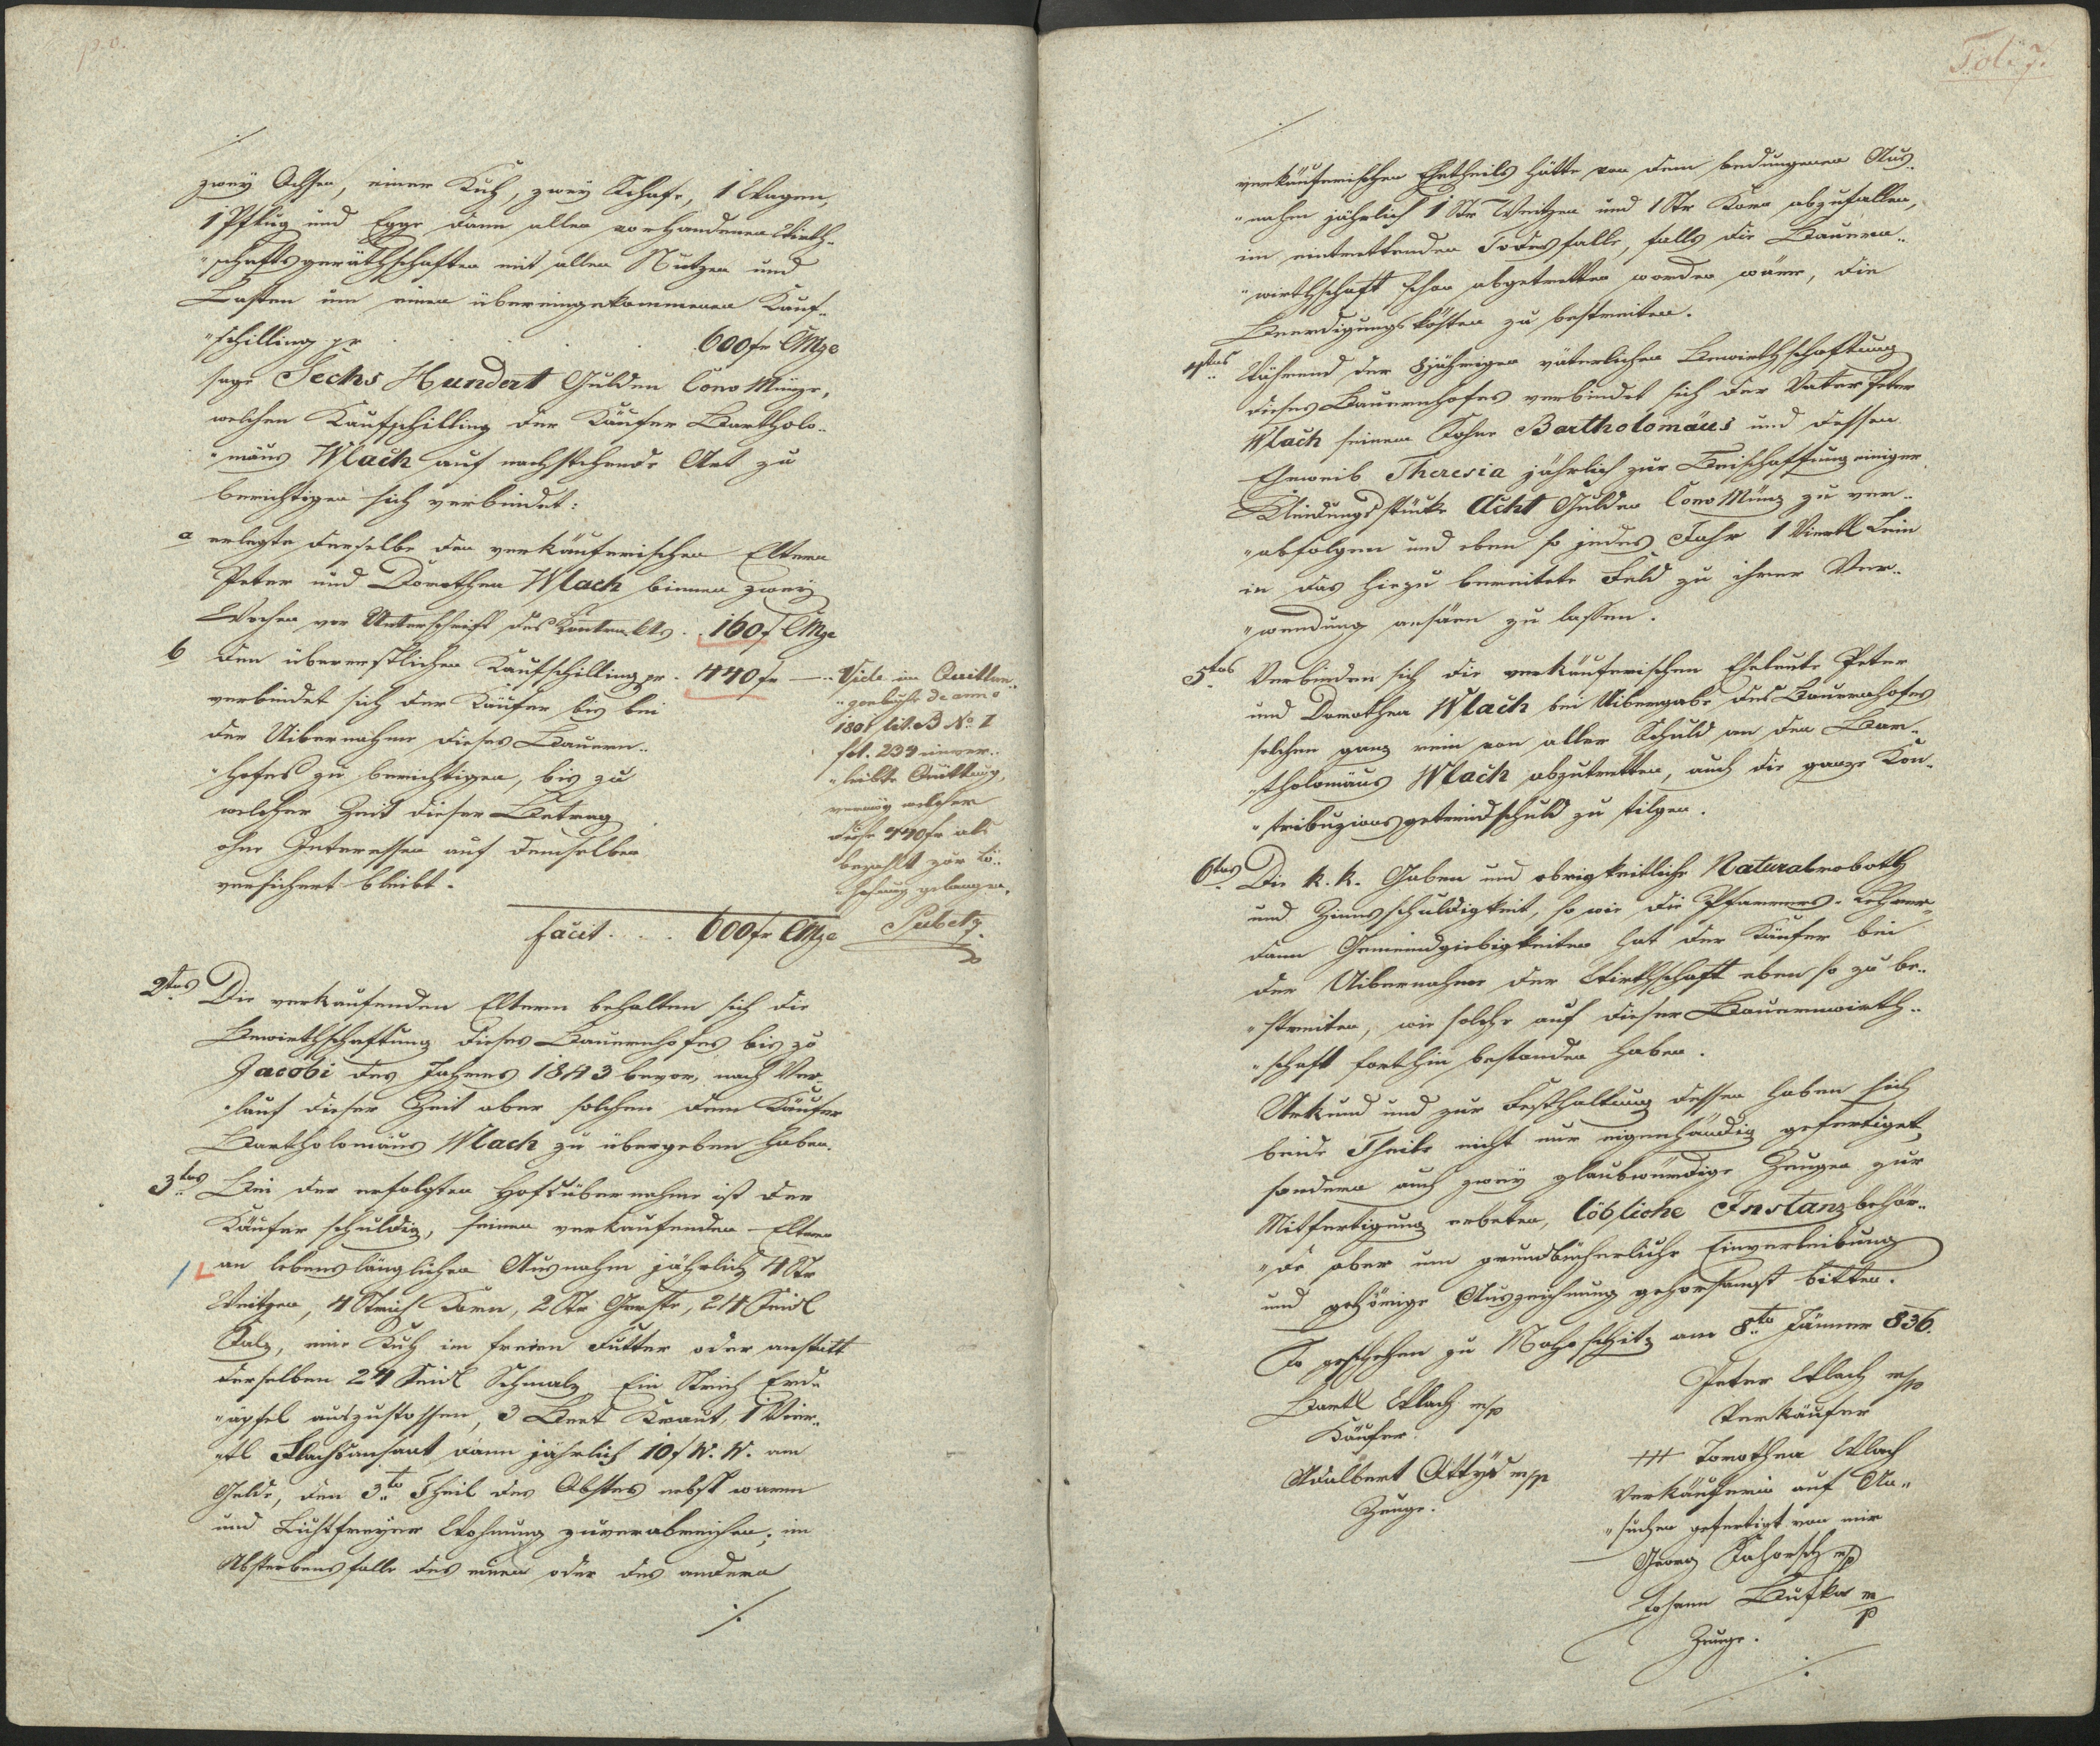 p. v.
./.
zwey Ochsen, einer Kuh, zwey Schafe, 1 Wagen,
1 Pflug und Egge dann allen vorhandenen Wirth-
"schaftsgeräthschaften mit allen Nutzen und
Lasten um einen übereingekommenen Kauf-
"schilling pr . . . . 600 fr CMze
sage Sechs Hundert Gulden Conv Münze,
welchen Kaufschilling der Käufer Bartholo-
"mäus Wlach auf nachstehende Art zu
berichtigen sich verbindet:
a erlegte derselbe den verkäuferischen Eltern
Peter und Dorothea Wlach binnen zwey
Wochen vor Unterschrift des Kontrakts . 160 f CMze
b Den überrestlichen Kaufschilling pr . 440 fr —
verbindet sich der Käufer bis bei
der Uibernahme dieses Bauern-
"hofes zu berichtigen, bis zu
welcher Zeit dieser Betrag
ohne Interessen auf demselben
versichert bleibt.
Vide im Quittun-
"genbuche de anno
1801 lit. B No. I
fol. 234 einver-
"leibte Quittung,
vermög welcher
diese 440 fr als
bezahlt zur Lö-
"schung gelangen.
Pubetz
facit . . . 600 fr CMze
2tens Die verkaufenden Eltern behalten sich die
Bewirthschaftung dieses Bauernhofes bis zu
Jacobi des Jahres 1843 bevor, nach Ver-
"lauf dieser Zeit aber solchen dem Käufer
Bartholomäus Wlach zu übergeben haben.
3tens Bei der erfolgten Hofsübernahme ist der
Käufer schuldig, seinen verkaufenden Eltern
an lebenslänglichen Ausnahm jährlich 4 Str
Weitzen, 4 Strich Korn, 2 Str Gerste, 24 Seidl
Salz, eine Kuh im freien Futter oder anstatt
derselben 24 Seidl Schmalz Ein Strich Erd-
"äpfel auszustossen, 3 Beet Kraut, 1 Vier-
"tl Flachsansaat dann jährlich 10 f W. W. am
Gelde, den 3to Theil des Obstes nebst warm
und Lichtfreyer Wohnung zuverabreichen; im
Absterbensfalle des einen oder des andern
./.
Fol. 7.
./.
verkäuferischen Ehetheils hätte von dem bedungenen Aus-
"nahm jährlich 1 Str Weitzen und 1 Str Korn abzufallen,
im eintrettenden Todesfalle, falls die Bauern-
"wirthschaft schon abgetretten worden wäre, die
Beerdigungskösten zu bestreiten.
4tens Während der 8jährigen väterlichen Bewirthschaftung
dieses Bauernhofes verbindet sich der Vater Peter
Wlach seinem Sohne Bartholomäus und dessen
Eheweib Theresia jährlich zur Beischaffung einiger
Kleidungsstücke Acht Gulden Conv Münz zu ver-
"abfolgen und eben so jedes Jahr 1 Viertl Lein
in das hiezu bereitete Feld zu ihrer Ver-
"wendung ansäen zu lassen.
5tens Verbinden sich die verkäuferischen Eheleute Peter
und Dorothea Wlach bei Uibergabe des Bauernhofes
solchen ganz rein von aller Schuld an den Bar-
"tholomäus Wlach abzutretten, auch die ganze Kon-
"tribuzionsgetreidschuld zu tilgen.
6tens Die k. k. Gaben und obrigkeitliche Naturalroboth
und Zinnsschuldigkeit, so wie die Pfarrers- Lehrer-
dann Gemeindgiebigkeiten hat der Käufer bei
der Uibernahme der Wirthschaft eben so zu be-
"streiten, wie solche auf dieser Bauernwirth-
"schaft forthin bestanden haben.
Urkund und zur Festhaltung dessen haben sich
beide Theile nicht nur eigenhändig gefertiget,
sondern auch zwey glaubwürdige Zeugen zur
Mitfertigung erbeten, löbliche Instanzbehör-
"de aber um grundbücherliche Einverleibung
und gehörige Auszeichnung gehorsamst bitten.
So geschehen zu am 8to Jänner 836.
Bartl Wlach mp
Käufer
Adalbert Ottys mp
Zeuge.
Peter Wlach mp
Verkäufer
+++ Dorothea Wlach
Verkäuferin auf An-
"suchen gefertigt von mir
Georg mp
Johann Bufka mp
Zeuge.
./.